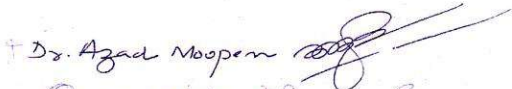 Dr. Azad Moopen